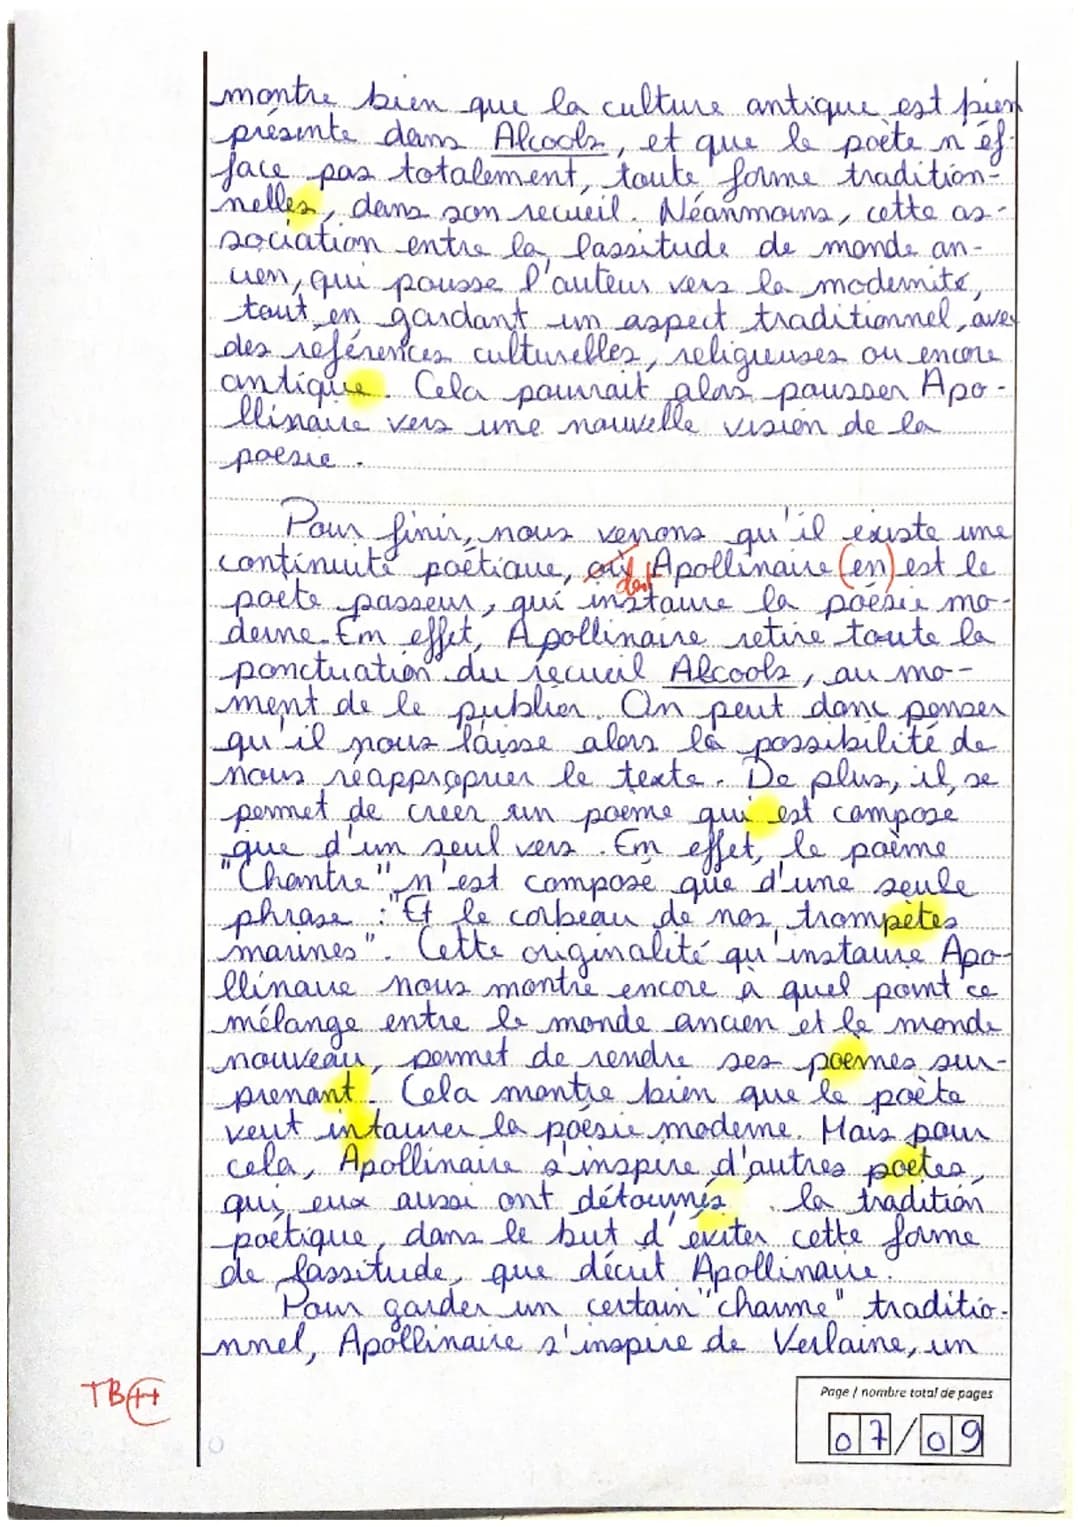 montre bien que la culture antique est bien
présente dans Alcools, et que le poète n'ef-
face pas totalement, toute forme tradition-
nelles, dans son recueil. Néanmoins, cette as-
sociation entre la lassitude de monde an-
cien, qui pousse l'auteur vers la modernité,
tout en gardant un aspect traditionnel, avec
des références culturelles, religieuses ou encore
antique. Cela pourrait alors pousser Apo-
llinaire vers une nouvelle vision de la
poésie.
Pour finir, nous verrons qu'il existe une
continuité poétique, où dont Apollinaire (en) est le
poète passeur, qui instaure la poésie mo-
derne. Em effet, Apollinaire retire toute la
ponctuation du recueil Alcools, au mo-
ment de le publier. On peut donc penser
qu'il nous laisse alors la possibilité de
nous réapproprier le texte. De plus, il se
permet de créer un poème qui est composé
que d'un seul vers. Em effet, le poème
"Chantre" n'est composé que d'une seule
phrase : "Et le corbeau de nos trompètes
marines". Cette originalité qu'instaure Apo-
llinaire nous montre encore à quel point ce
mélange entre le monde ancien et le monde
nouveau, permet de rendre ses poemes sur-
prenant. Cela montre bien que le poète
veut intaurer la poésie moderne. Mais pour
cela, Apollinaire s'inspire d'autres poetes,
qui, eux aussi ont détournés la tradition
poétique, dans le but d'éviter cette forme
de lassitude, que décrit Apollinaire.
Pour garder un certain "charme" traditio-
nnel, Apollinaire s'inspire de Verlaine, un
TB++
Page / nombre total de pages
07/09